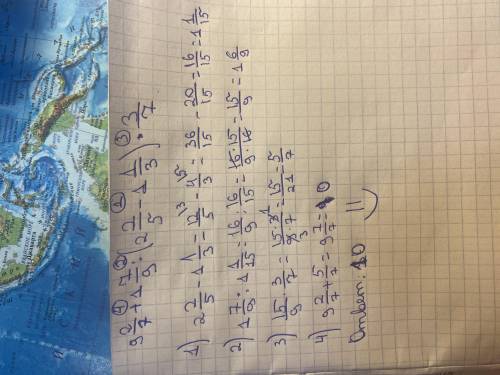 ④ ② ① ③
9 2/7 + 1 7/9 : (2 2/5 - 1 1/3) · 3/7
1) 2 2/5 - 1 1/3 = 12/5 - 4/3 = 36/15 - 20/15 = 16/15 = 1 1/15
2) 1 7/9 : 1 1/15 = 16/9 : 16/15 = 16·15/9·16 = 15/9 = 1 6/9
3) 15/9 · 3/7 = 15·3/9·7 = 15/21 = 5/7
4) 9 2/7 + 5/7 = 9 7/7 = 10
Ответ: 10